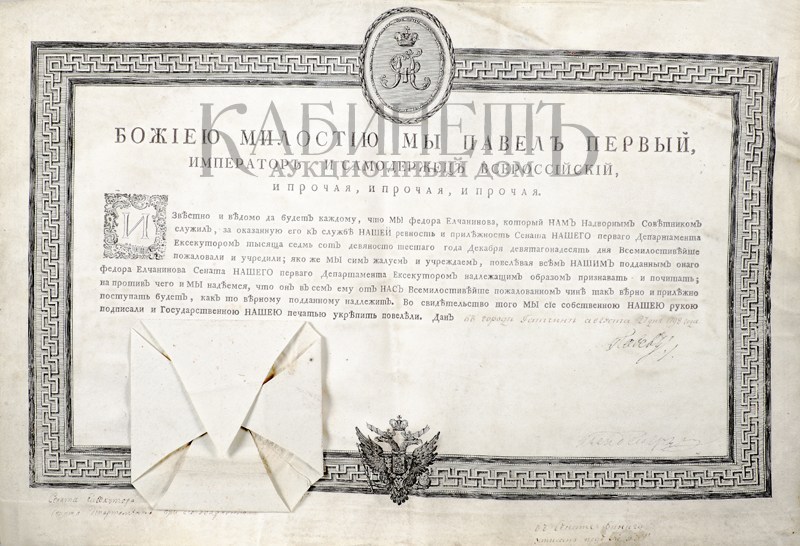 КАБИНЕТЪ
АУКЦИОННЫЙ ДОМ
БОЖІЕЮ МИЛОСТІЮ МЫ ПАВЕЛЪ ПЕРВЫЙ,
ИМПЕРАТОРЪ И САМОДЕРЖЕЦЪ ВСЕРОССІЙСКІЙ,
И ПРОЧАЯ, И ПРОЧАЯ, И ПРОЧАЯ.
ИЗвѣстно и вѣдомо да будетъ каждому, что МЫ федора Елчанинова, который НАМЪ Надворнымъ Совѣтникомъ
служилъ, за оказанную его къ службѣ НАШЕЙ ревность и прилѣжность Сената НАШЕГО перваго Департамента
Ексекуторомъ тысяща седмь сотъ девяносто шестаго года Декабря девятагонадесять дня Всемилостивѣйше
пожаловали и учредили; яко же МЫ симъ жалуемъ и учреждаемъ, повелѣвая всѣмъ НАШИМЪ подданнымъ онаго
федора Елчанинова Сената НАШЕГО перваго Департамента Ексекуторомъ надлежащимъ образомъ признавать и почитать;
на противъ чего и МЫ надѣемся, что онъ въ семъ ему отъ НАСЪ Всемилостивѣйше пожалованномъ чинѣ такъ вѣрно и прилѣжно
поступать будетъ, какъ то вѣрному подданному надлежитъ. Во свидѣтельство того МЫ сіе собственною НАШЕЮ рукою
подписали и Государственною НАШЕЮ печатью укрѣпить повелѣли. Данъ въ городѣ Гатчинѣ августа
Павелъ